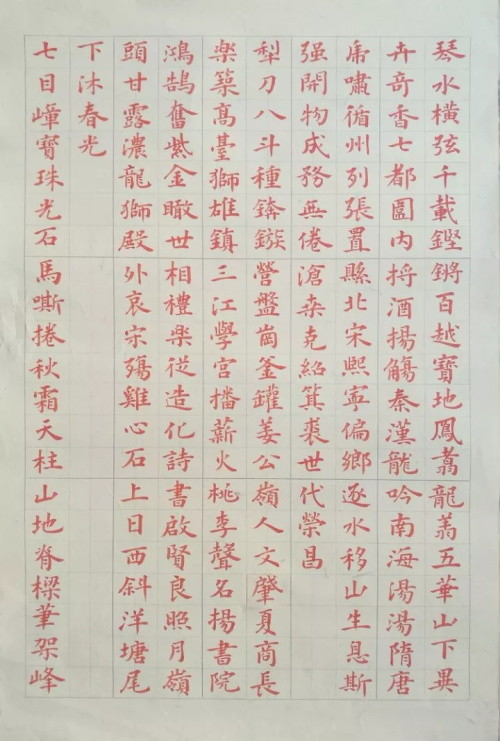 琴水橫弦千載鏗鏘百越寶地鳳翥龍翔五華山下異
卉奇香七都圖內捋酒揚觴秦漢龍吟南海湯湯隋唐
虎嘯循州列張置縣北宋熙寧偏鄉逐水移山生息斯
强開物成務無倦滄桑克紹箕裘世代榮昌
犁刀八斗種錛鏃營盤崮釜罐姜公嶺人文肇夏商長
楽築高臺獅雄鎮三江學宮播薪火桃李聲名揚書院
鴻鵠奮紫金瞰世相禮楽從造化詩書啟賢良照月嶺
頭甘露濃龍獅殿外哀宗殤雞心石上日西斜洋塘尾
下沐春光
七目嶂寶珠光石馬嘶捲秋霜天柱山地脊樑筆架峰